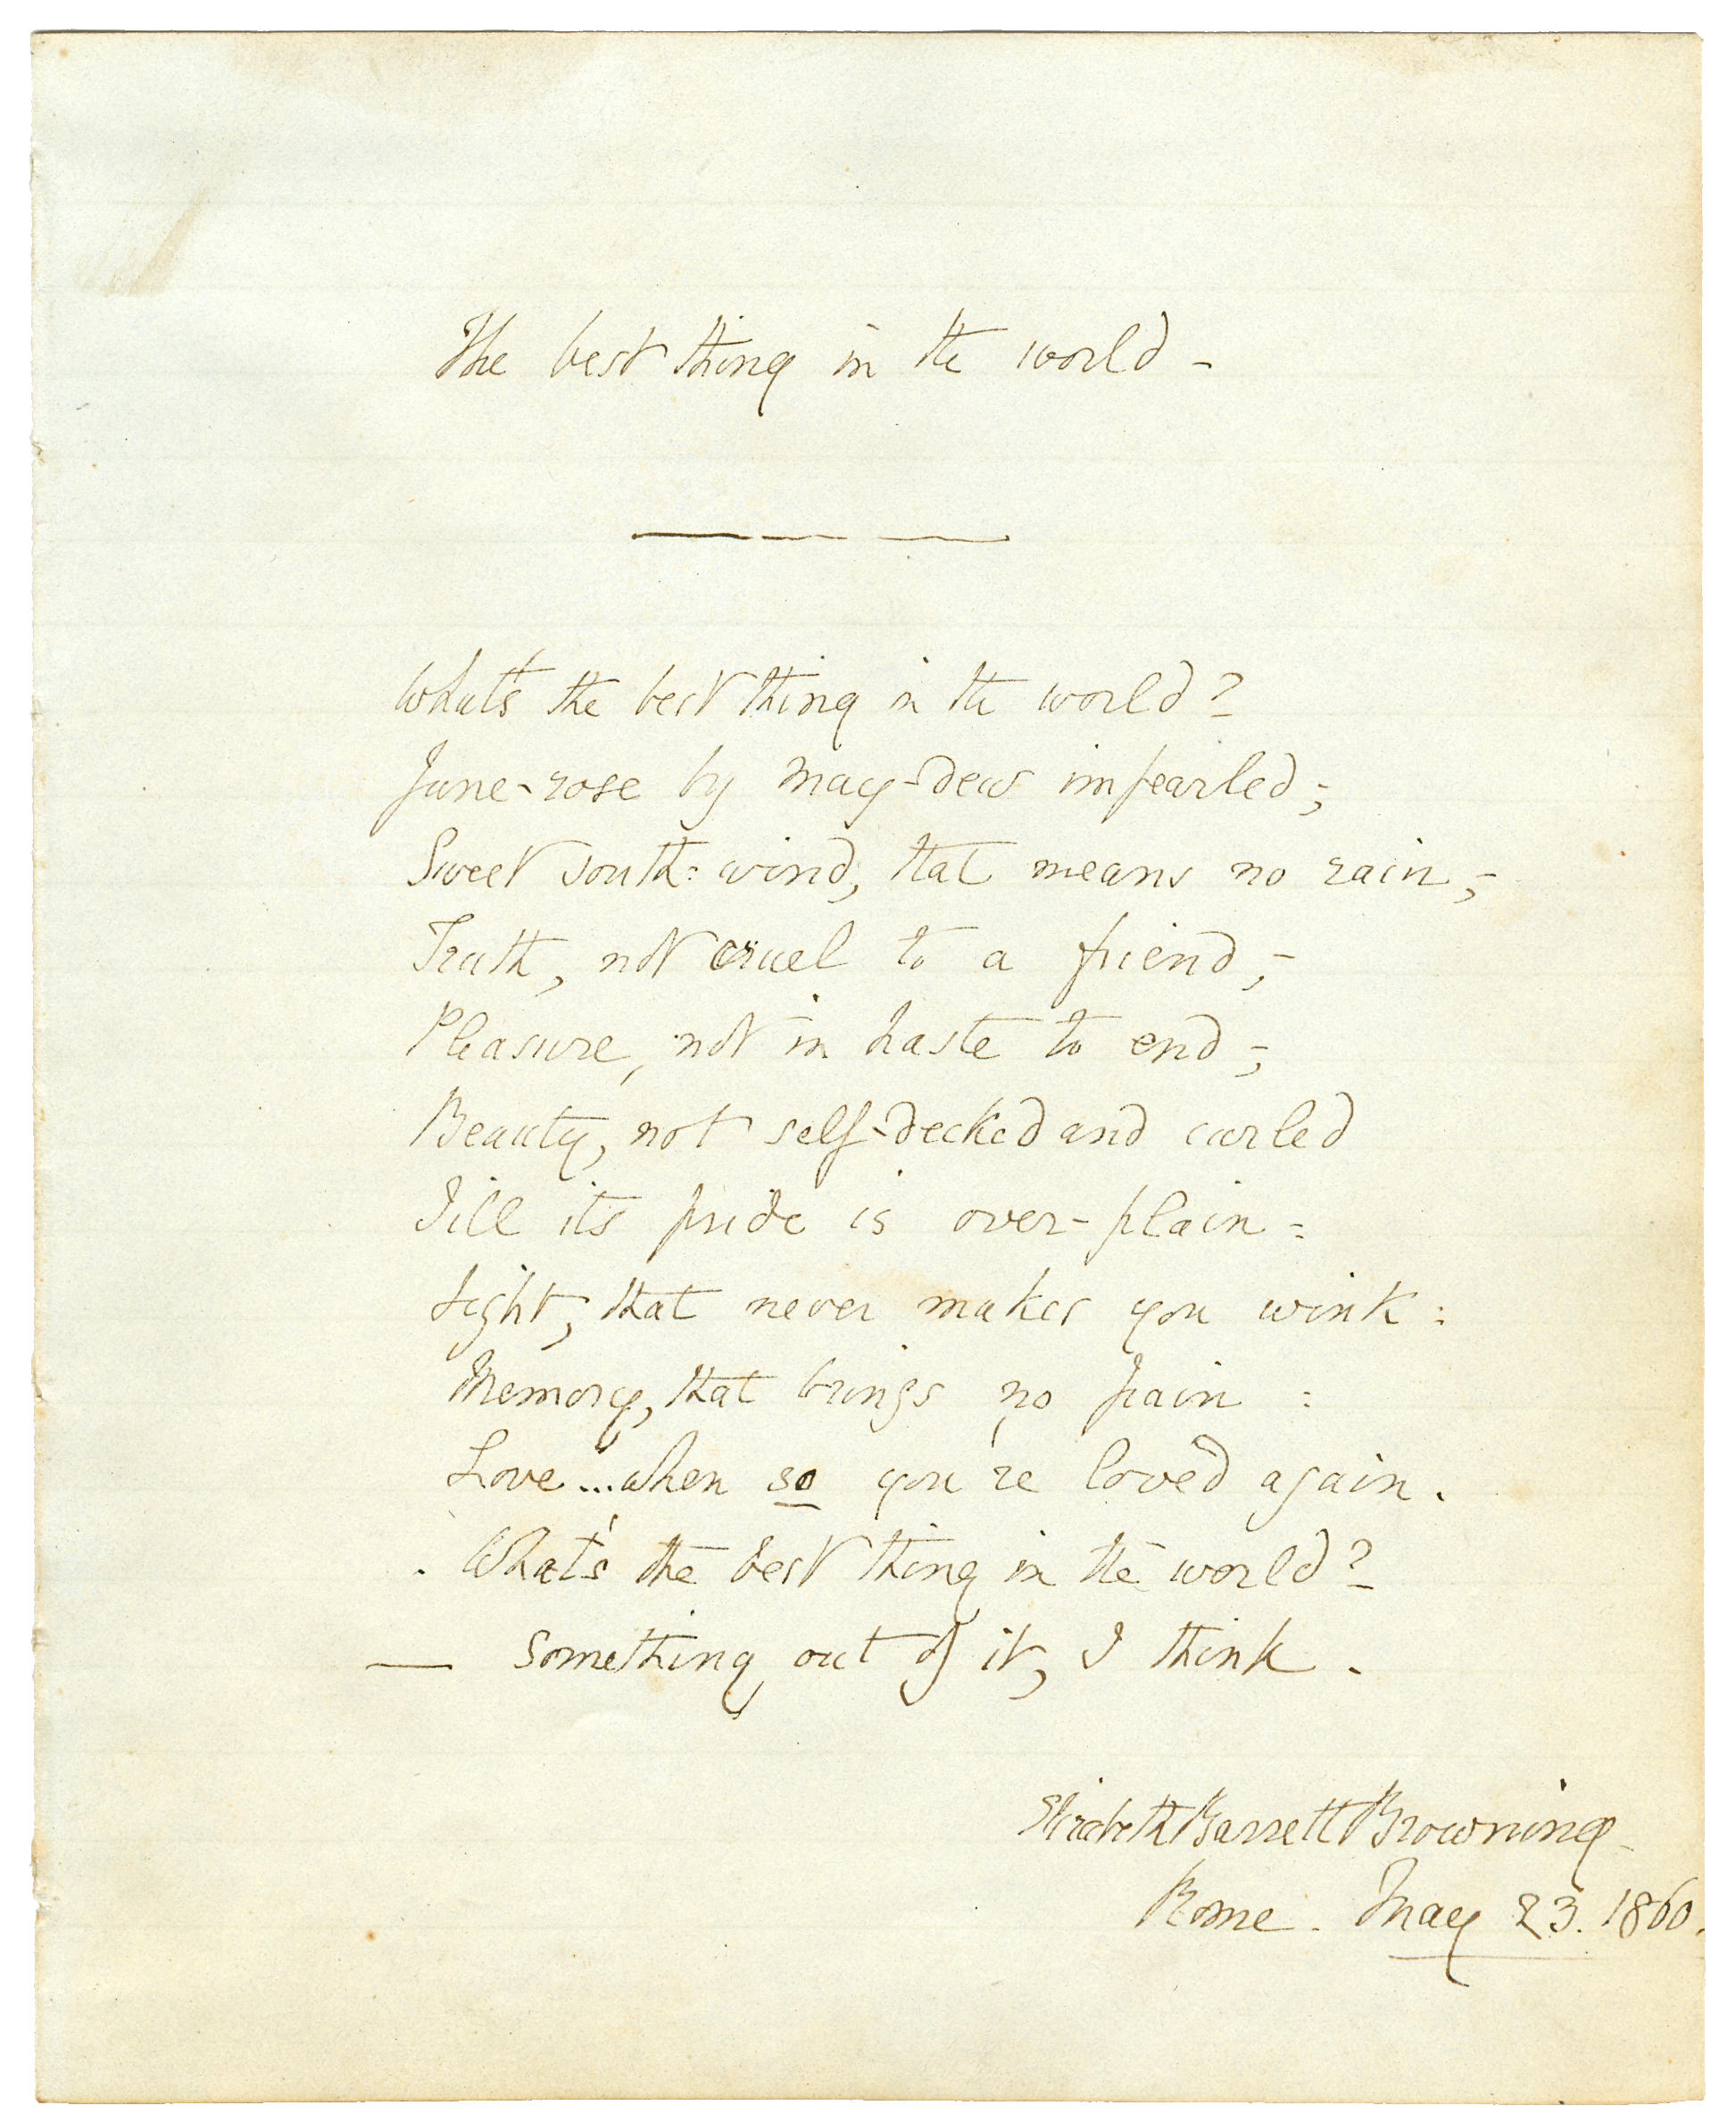 The best thing in the world -
What's the best thing in the world?
June-rose by May-dew impearled;
Sweet south-wind, that means no rain;
Truth, not cruel to a friend;
Pleasure, not in haste to end;
Beauty, not self-decked and curled
Till it's pride is over-plain:
Light, that never makes you wink:
Memory, that brings no pain:
Love... when so you're loved again.
What's the best thing in the world?
— Something out of it, I think.
Elizabeth Barrett Browning
Rome. May 23. 1860.